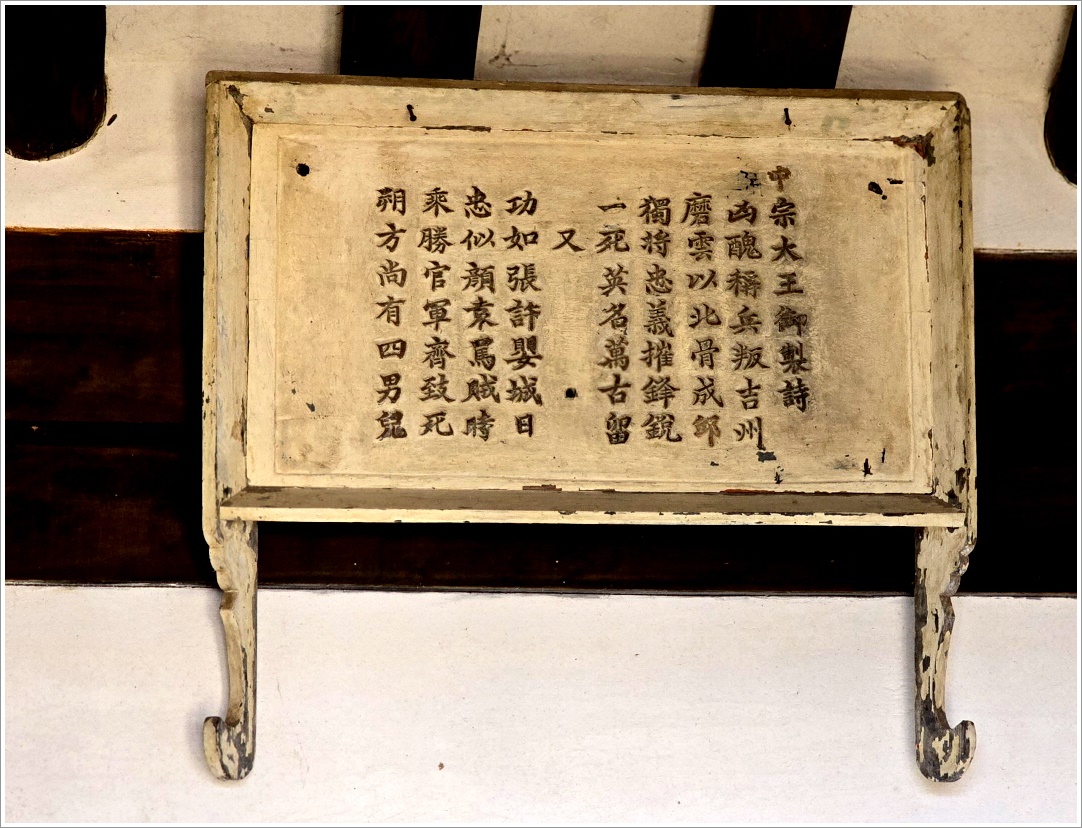 中宗大王御製詩
凶醜稱兵叛吉州
磨雲以北骨成邱
獨將忠義摧鋒銳
一死英名萬古留
又
功如張許嬰城日
忠似顔袁罵賊時
乘勝官軍齊致死
朔方尚有四男兒